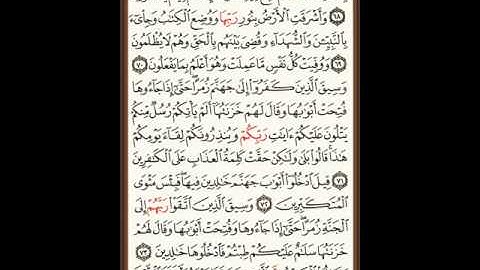 ٦٨ وَأَشْرَقَتِ ٱلْأَرْضُ بِنُورِ رَبِّهَا وَوُضِعَ ٱلْكِتَٰبُ وَجِا۟ىٓءَ
بِٱلنَّبِيِّـۧنَ وَٱلشُّهَدَآءِ وَقُضِىَ بَيْنَهُم بِٱلْحَقِّ وَهُمْ لَا يُظْلَمُونَ
٦٩ وَوُفِّيَتْ كُلُّ نَفْسٍ مَّا عَمِلَتْ وَهُوَ أَعْلَمُ بِمَا يَفْعَلُونَ ٧٠
وَسِيقَ ٱلَّذِينَ كَفَرُوٓا۟ إِلَىٰ جَهَنَّمَ زُمَرًا حَتَّىٰٓ إِذَا جَآءُوهَا
فُتِحَتْ أَبْوَٰبُهَا وَقَالَ لَهُمْ خَزَنَتُهَآ أَلَمْ يَأْتِكُمْ رُسُلٌ مِّنكُمْ
يَتْلُونَ عَلَيْكُمْ ءَايَٰتِ رَبِّكُمْ وَيُنذِرُونَكُمْ لِقَآءَ يَوْمِكُمْ
هَٰذَا قَالُوا۟ بَلَىٰ وَلَٰكِنْ حَقَّتْ كَلِمَةُ ٱلْعَذَابِ عَلَى ٱلْكَٰفِرِينَ
٧١ قِيلَ ٱدْخُلُوٓا۟ أَبْوَٰبَ جَهَنَّمَ خَٰلِدِينَ فِيهَا فَبِئْسَ مَثْوَى
ٱلْمُتَكَبِّرِينَ ٧٢ وَسِيقَ ٱلَّذِينَ ٱتَّقَوْا۟ رَبَّهُمْ إِلَى
ٱلْجَنَّةِ زُمَرًا حَتَّىٰٓ إِذَا جَآءُوهَا وَفُتِحَتْ أَبْوَٰبُهَا وَقَالَ لَهُمْ
خَزَنَتُهَا سَلَٰمٌ عَلَيْكُمْ طِبْتُمْ فَٱدْخُلُوهَا خَٰلِدِينَ ٧٣